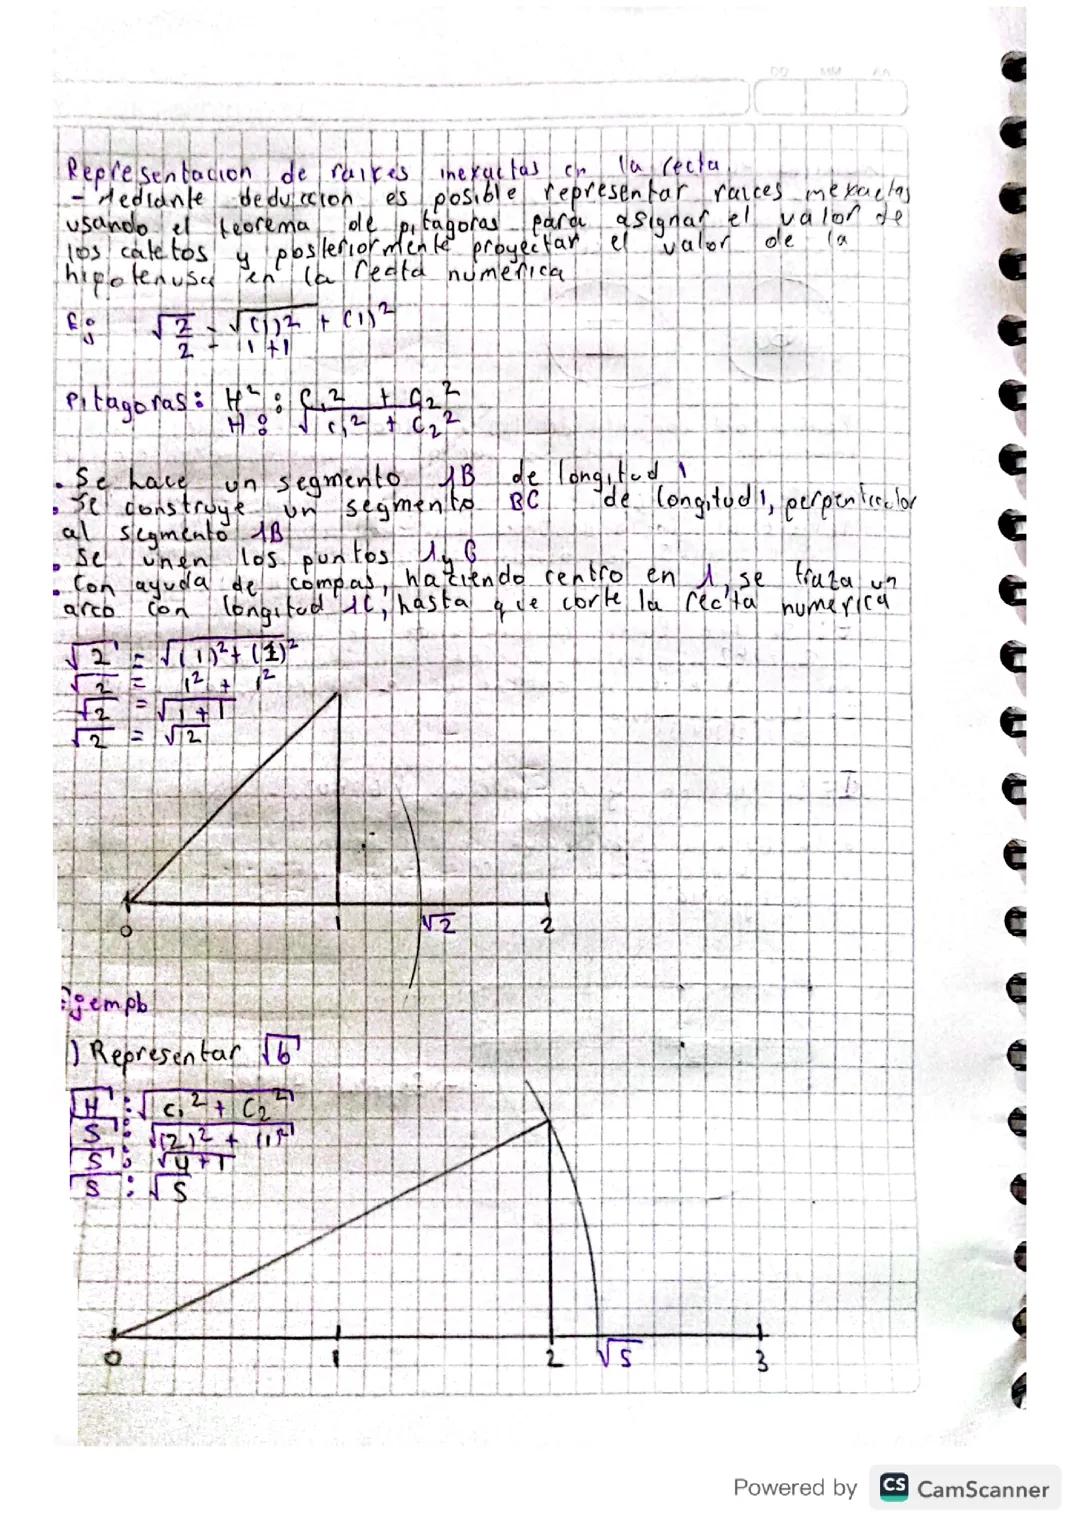 DD MM AA
Representacion de raices inexactas en la recta
- Mediante deduccion es posible representar raices inexactas
usando el teorema de pitagoras para asignar el valor de
los catetos y posteriormente proyectar el valor de la
hipotenusa en la recta numerica
Ej: √2 = √(1)² + (1)²
2 = 1 + 1
Pitagoras: H² : C₁² + C₂²
H : √C₁² + C₂²
. Se hace un segmento AB de longitud 1
. Se construye un segmento BC de longitud 1, perpendicular
al segmento AB
. Se unen los puntos A y C
. Con ayuda de compas, haciendo centro en A, se traza un
arco con longitud AC, hasta que corte la recta numerica
√2 = √(1)² + (1)²
√2 = 1² + 1²
√2 = √1 + 1
√2 = √2
0 1 √2 2
Ejemplo
) Representar √6
√H : √C₁² + C₂²
√5 : √(2)² + (1)²
√5 : √4 + 1
√5 : √5
0 1 2 √5 3
Powered by CS CamScanner